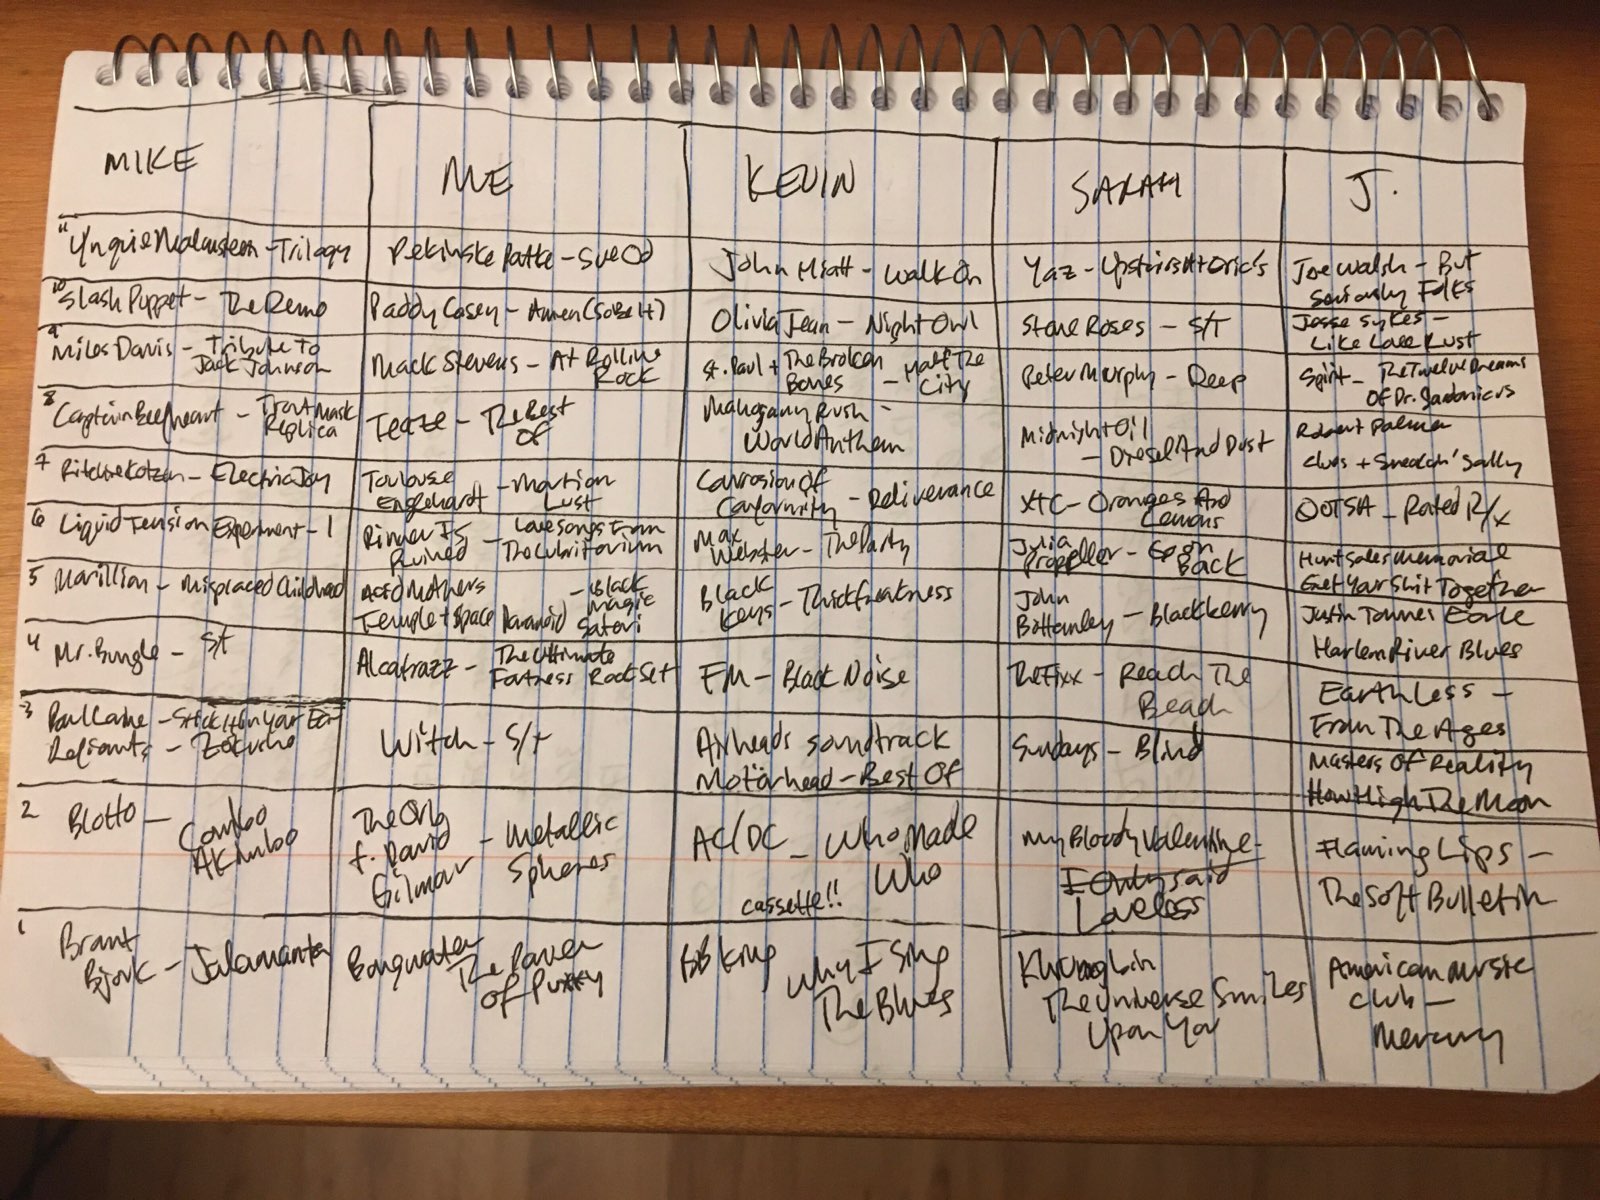 MIKE
ME
KEVIN
SARAH
J.
11
Yngwie Malmsteen - Trilogy
Pekinska Patte - Sve Od
John Hiatt - Walk On
Yaz - Upstairs At Eric's
Joe Walsh - But
Seriously Folks
10
Slash Puppet - The Demo
Paddy Casey - Amen (So Be It)
Olivia Jean - Night Owl
Stone Roses - S/T
Jesse Sykes -
Like Love Lust
9
Miles Davis - Tribute To
Jack Johnson
Mack Stevens - At Rollin
Rock
St. Paul + The Broken
Bones - Half The
City
Peter Murphy - Deep
Spirit - The Twelve Dreams
Of Dr. Sardonicus
8
Captain Beefheart - Trout Mask
Replica
Teaze - The Best
Of
Mahogany Rush -
World Anthem
Midnight Oil
- Diesel And Dust
Robert Palmer
Clues + Sneakin' Sally
7
Ritchie Kotzen - Electric Joy
Toulouse
Engelhardt - Martian
Lust
Corrosion Of
Conformity - Deliverance
XTC - Oranges And
Lemons
QOTSA - Rated R/X
6
Liquid Tension Experiment - 1
Dinner Is
Ruined - Love Songs From
The Lubritorium
Max
Webster - The Party
Julia
Propeller - Back
Hunt Sales Memorial
Get Your Shit Together
5
Marillion - Misplaced Childhood
Acid Mothers
Temple + Space Paranoid - Black
Magic
Satori
Black
Keys - Thickfreakness
John
Bottomley - Blackberry
Justin Townes Earle
Harlem River Blues
4
Mr. Bungle - S/T
Alcatrazz - The Ultimate
Fortress Rock Set
FM - Black Noise
The Fixx - Reach The
Beach
Earthless -
From The Ages
3
Paul Laine - Stick It In Your Ear
Defiants - Zokusho
Witch - S/T
Airheads soundtrack
Motörhead - Best Of
Sundays - Blind
Masters Of Reality
How High The Moon
2
Blotto -
Combo
Akimbo
The Orb
f. David
Gilmour - Metallic
Spheres
AC/DC - Who Made
Who
cassette!!
My Bloody Valentine -
I Only Said
Loveless
Flaming Lips -
The Soft Bulletin
1
Brant
Bjork - Jalamanta
Bongwater - The Power
Of Pussy
BB King
Why I Sing
The Blues
Khruangbin
The Universe Smiles
Upon You
American Music
Club -
Mercury